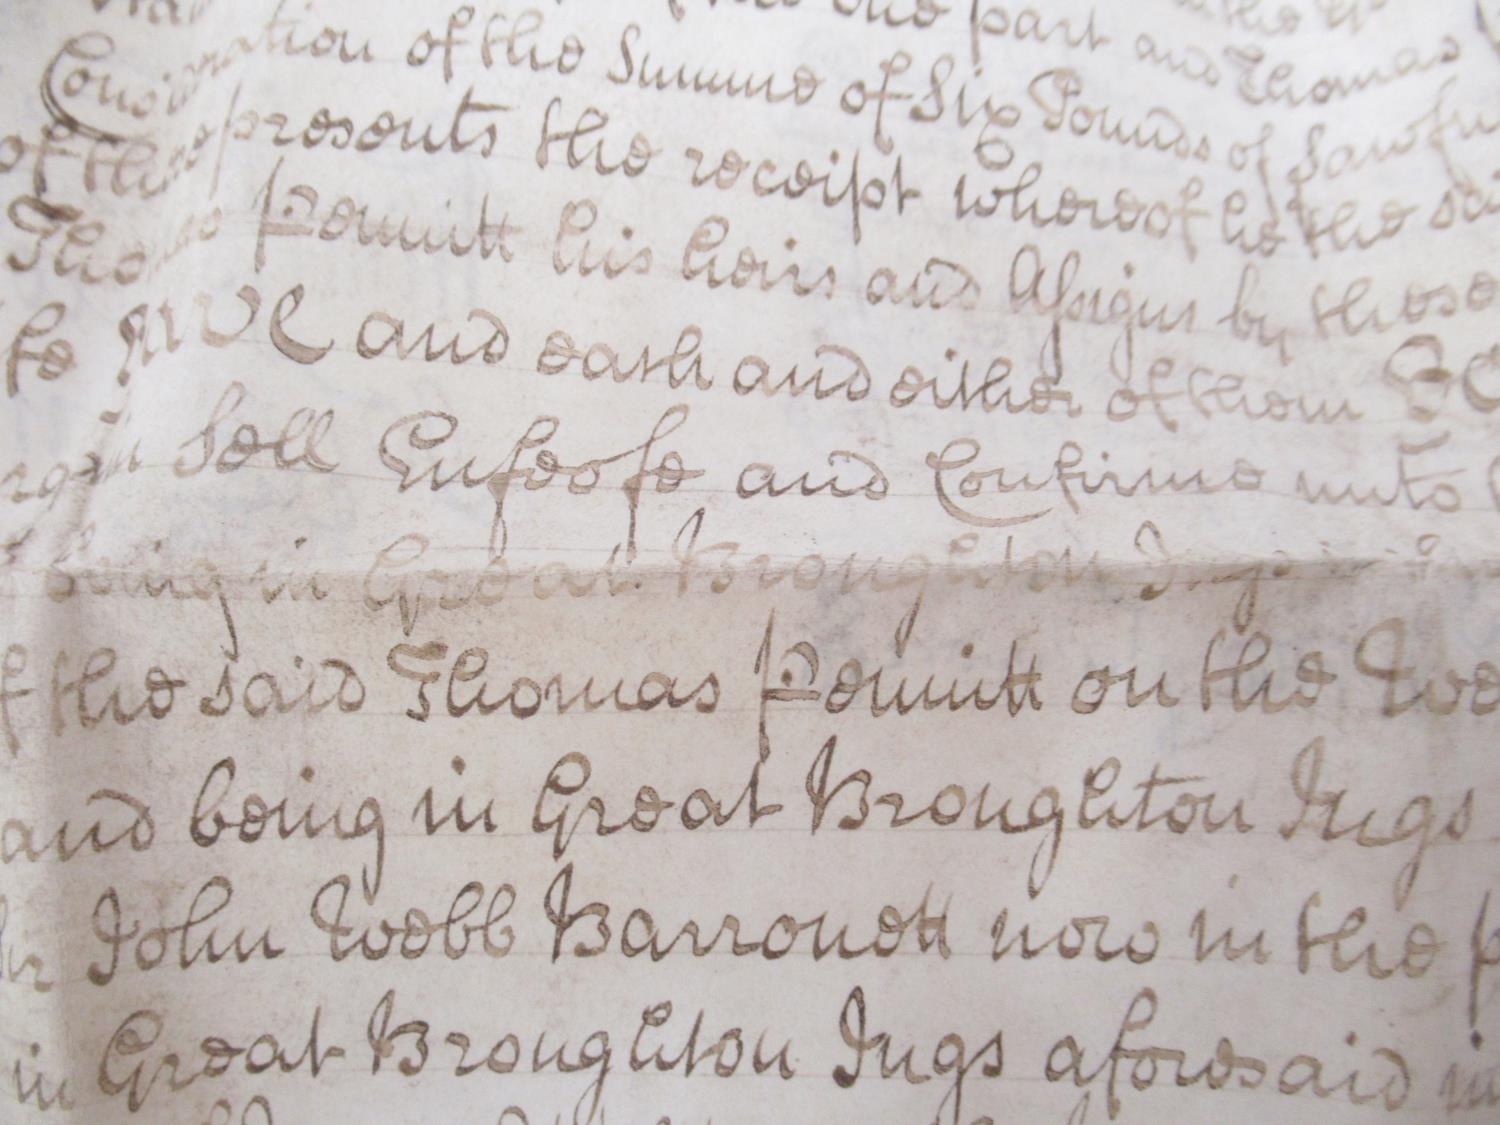 one part and Thomas
Consideration of the Summe of Six Pounds of Lawfu
of these presents the receipt whereof he the sai
Thomas Pemitt his heirs and Assigns by these
te and each and either of them
Sell Enfeofe and Confirme unto
being in Great Broughton Ings
f the said Thomas Pemitt on the We
and being in Great Broughton Ings
Sr John Webb Barronett now in the p
in Great Broughton Ings aforesaid in